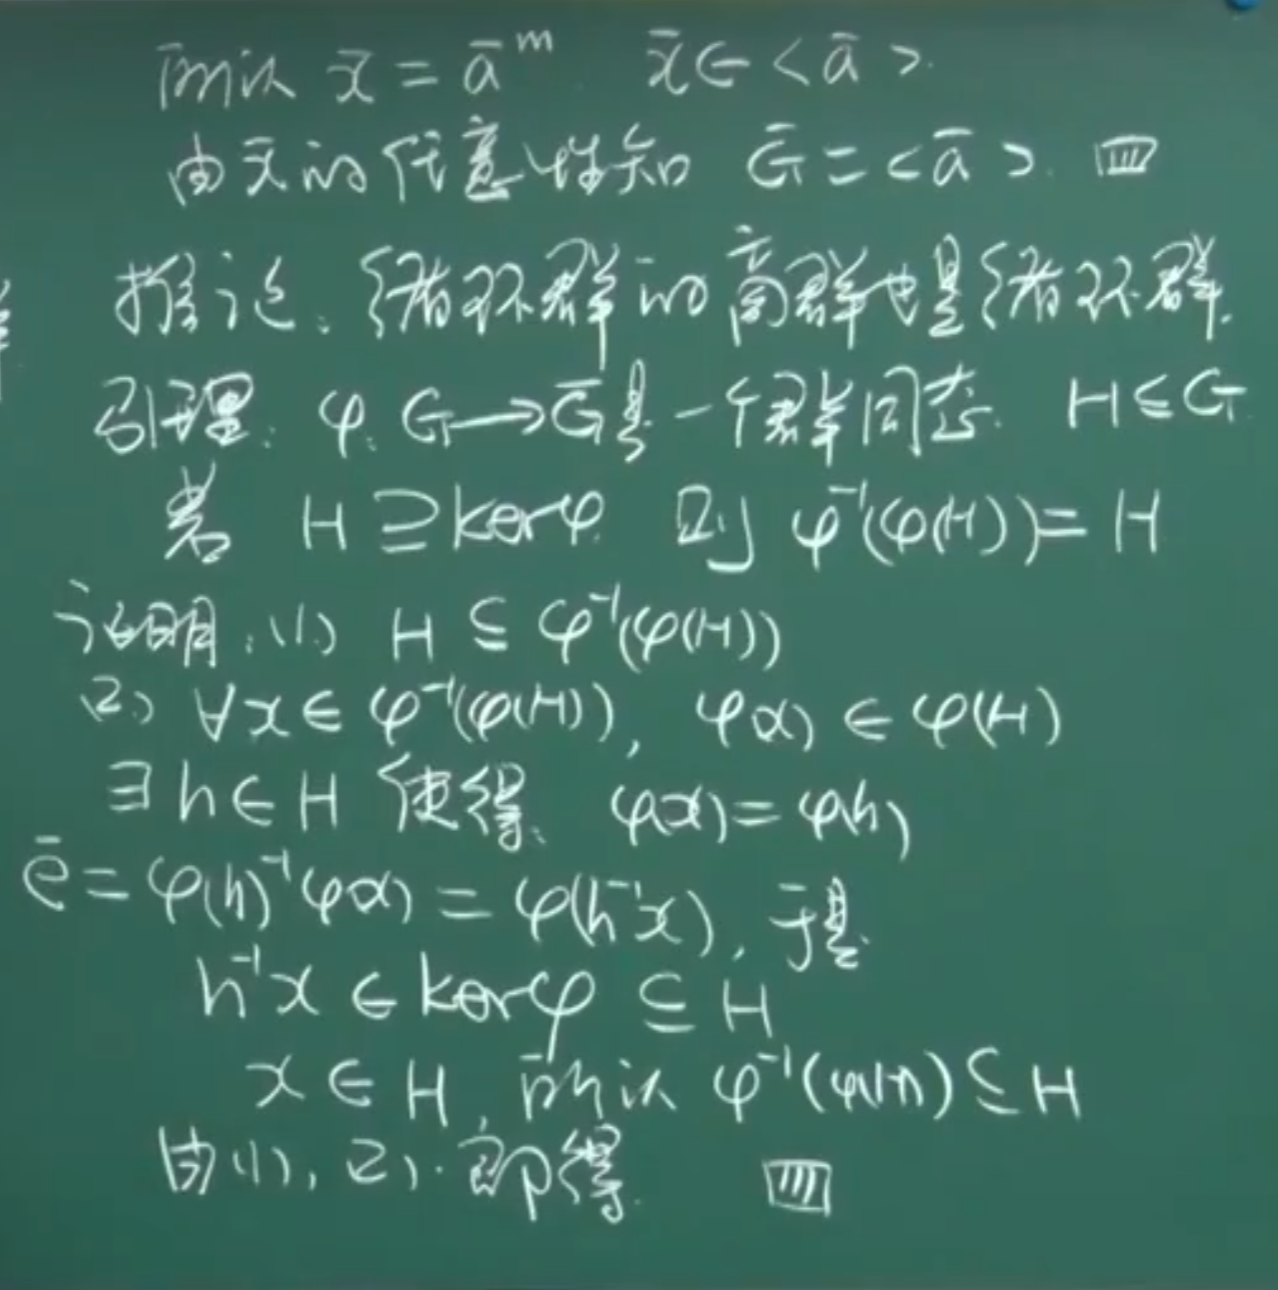 所以 x̄ = ā^m. x̄ ∈ <ā>.
由 x̄ 的任意性知 Ḡ = <ā>.
推论. 循环群的商群也是循环群.
引理. φ: G → Ḡ 是一个群同态. H ≤ G
若 H ⊇ kerφ. 则 φ⁻¹(φ(H)) = H
证明. (1) H ⊆ φ⁻¹(φ(H))
(2) ∀x ∈ φ⁻¹(φ(H)), φ(x) ∈ φ(H)
∃ h ∈ H 使得. φ(x) = φ(h)
ē = φ(h)⁻¹φ(x) = φ(h⁻¹x), 于是
h⁻¹x ∈ kerφ ⊆ H
x ∈ H, 所以 φ⁻¹(φ(H)) ⊆ H
由(1), (2). 即得.